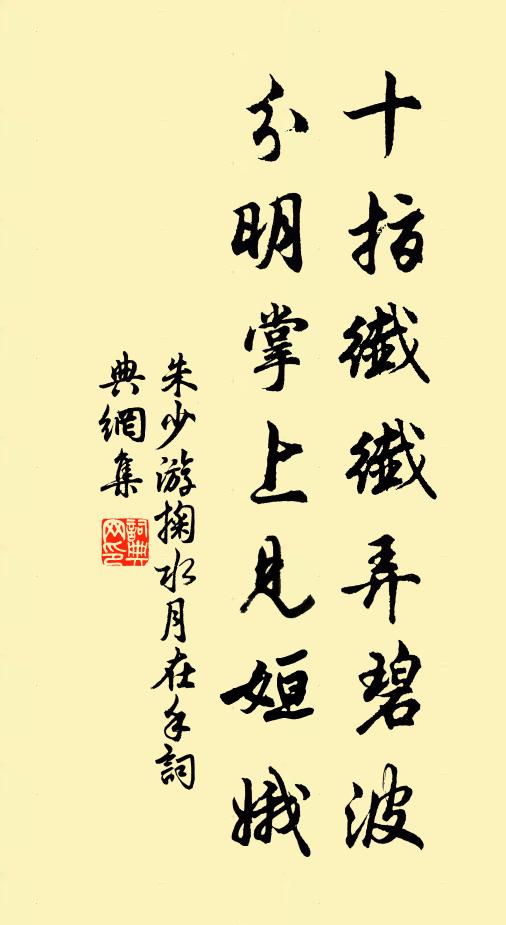 十指纖纖弄碧波
分明掌上見姮娥
朱少游掬水月在手詞
典網集
詞典網印